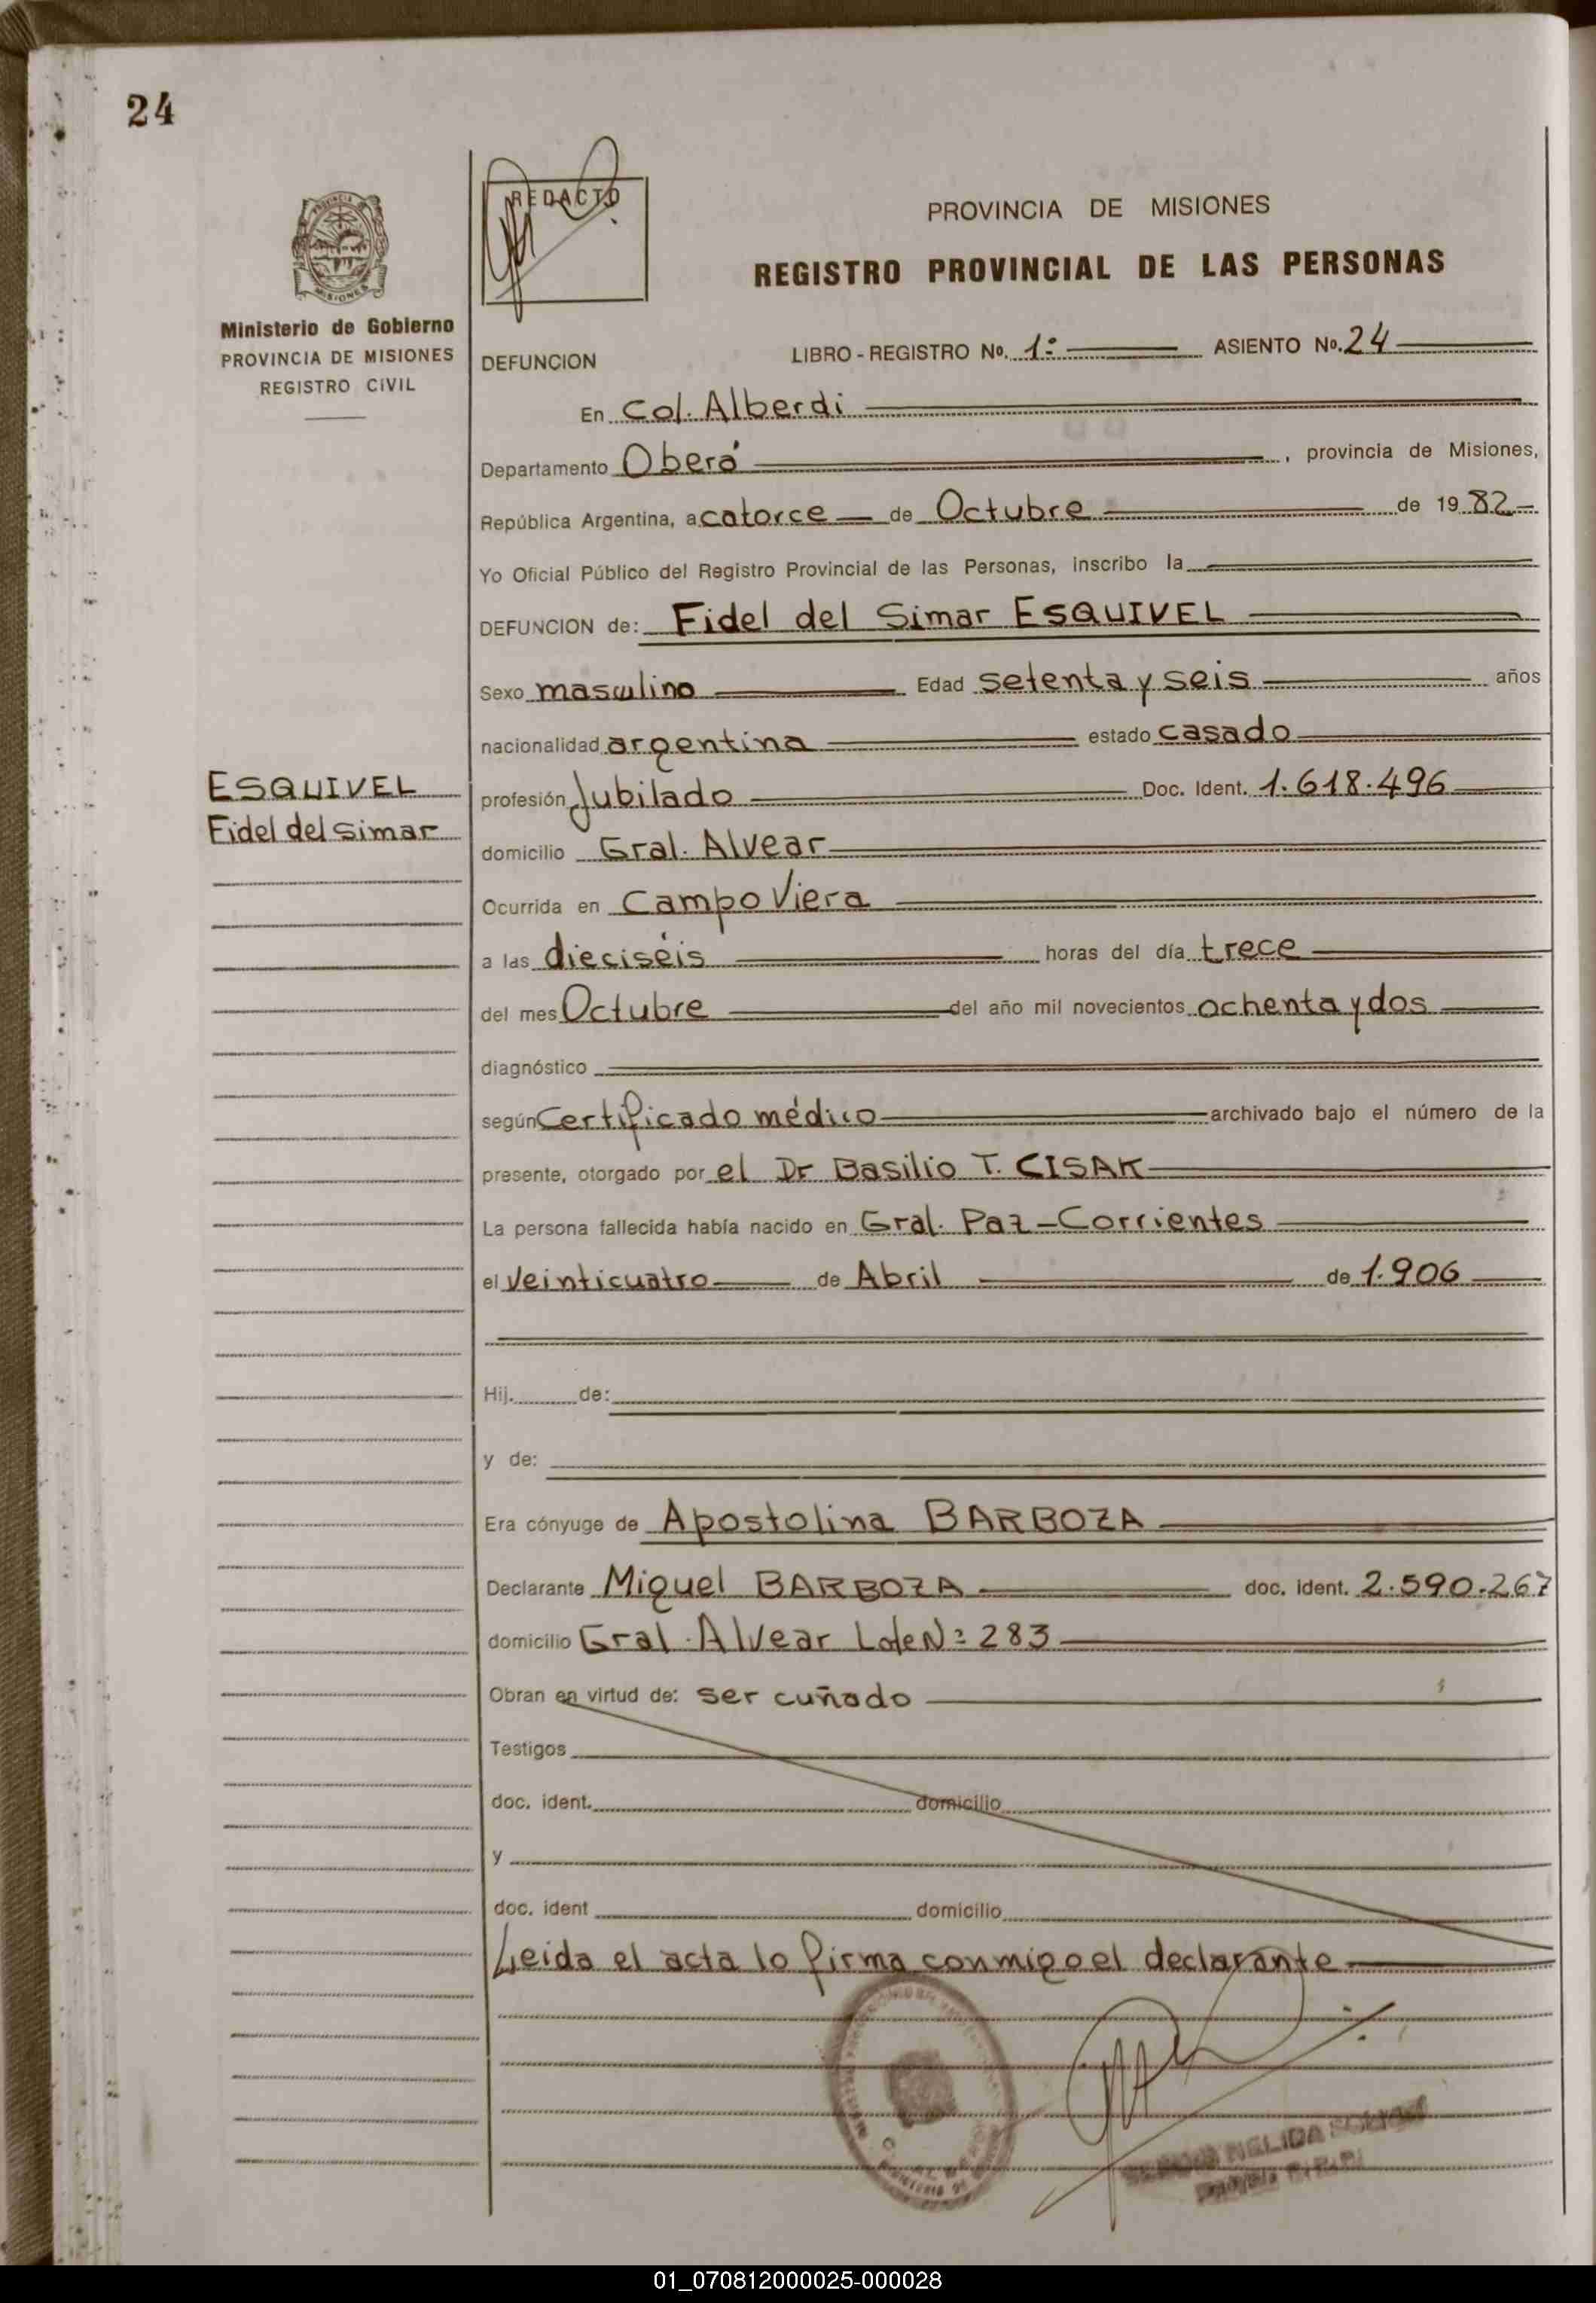 24
REDACTO
PROVINCIA DE MISIONES
REGISTRO PROVINCIAL DE LAS PERSONAS
MISIONES
Ministerio de Gobierno
PROVINCIA DE MISIONES
REGISTRO CIVIL
DEFUNCION LIBRO - REGISTRO Nº. 1º ASIENTO Nº. 24
En Col. Alberdi
Departamento Oberá , provincia de Misiones,
República Argentina, a catorce de Octubre de 19 82
Yo Oficial Público del Registro Provincial de las Personas, inscribo la
DEFUNCION de: Fidel del Simar ESQUIVEL
Sexo masculino Edad setenta y seis años
nacionalidad argentina estado casado
ESQUIVEL
Fidel del Simar
profesión Jubilado Doc. Ident. 1.618.496
domicilio Gral. Alvear
Ocurrida en Campo Viera
a las dieciséis horas del día trece
del mes Octubre del año mil novecientos ochenta y dos
diagnóstico
según Certificado médico archivado bajo el número de la
presente, otorgado por el Dr Basilio T. CISAK
La persona fallecida había nacido en Gral. Paz - Corrientes
el veinticuatro de Abril de 1.906
Hij. de:
y de:
Era cónyuge de Apostolina BARBOZA
Declarante Miguel BARBOZA doc. ident. 2.590.267
domicilio Gral. Alvear Lote Nº 283
Obran en virtud de: ser cuñado
Testigos
doc. ident. domicilio
y
doc. ident domicilio
Leida el acta lo firma conmigo el declarante
NELIDA
01_070812000025-000028